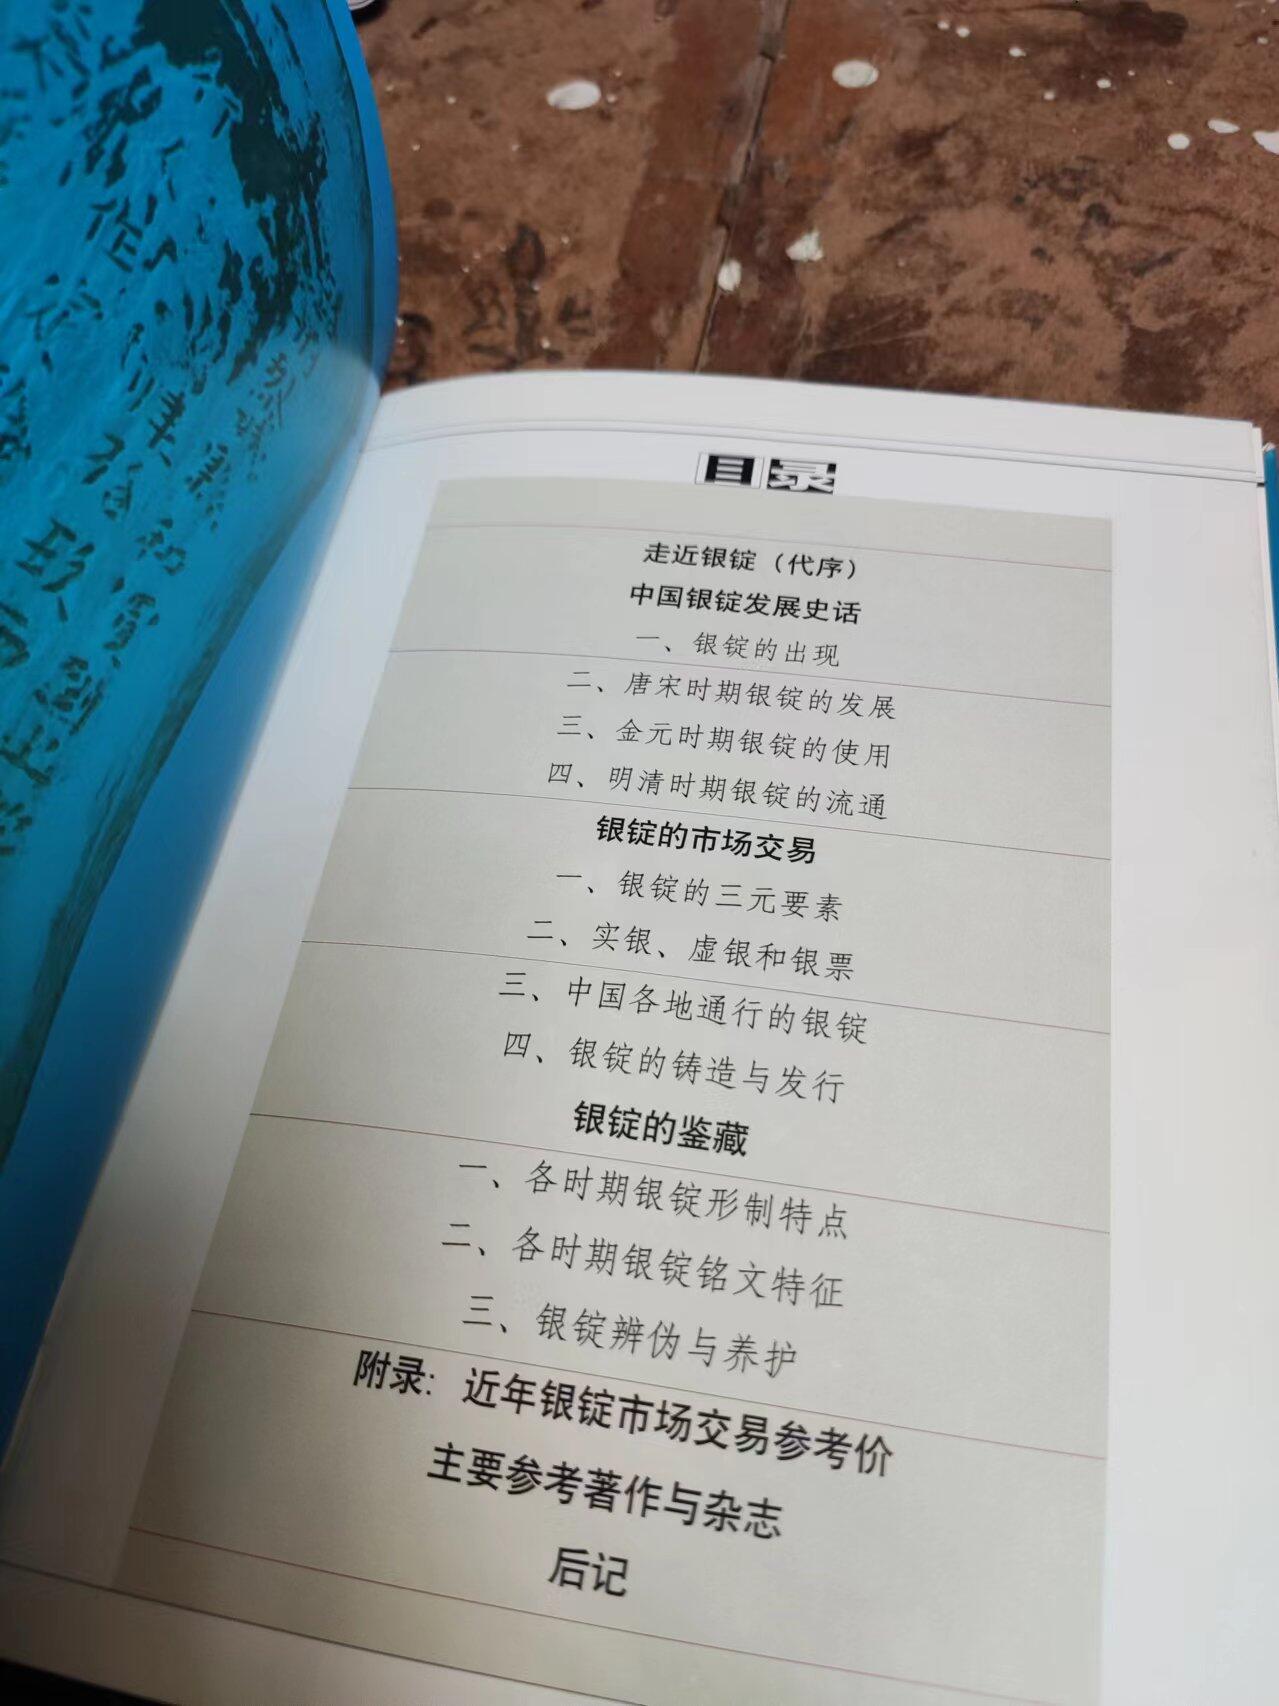 目录
走近银锭（代序）
中国银锭发展史话
一、银锭的出现
二、唐宋时期银锭的发展
三、金元时期银锭的使用
四、明清时期银锭的流通
银锭的市场交易
一、银锭的三元要素
二、实银、虚银和银票
三、中国各地通行的银锭
四、银锭的铸造与发行
银锭的鉴藏
一、各时期银锭形制特点
二、各时期银锭铭文特征
三、银锭辨伪与养护
附录：近年银锭市场交易参考价
主要参考著作与杂志
后记